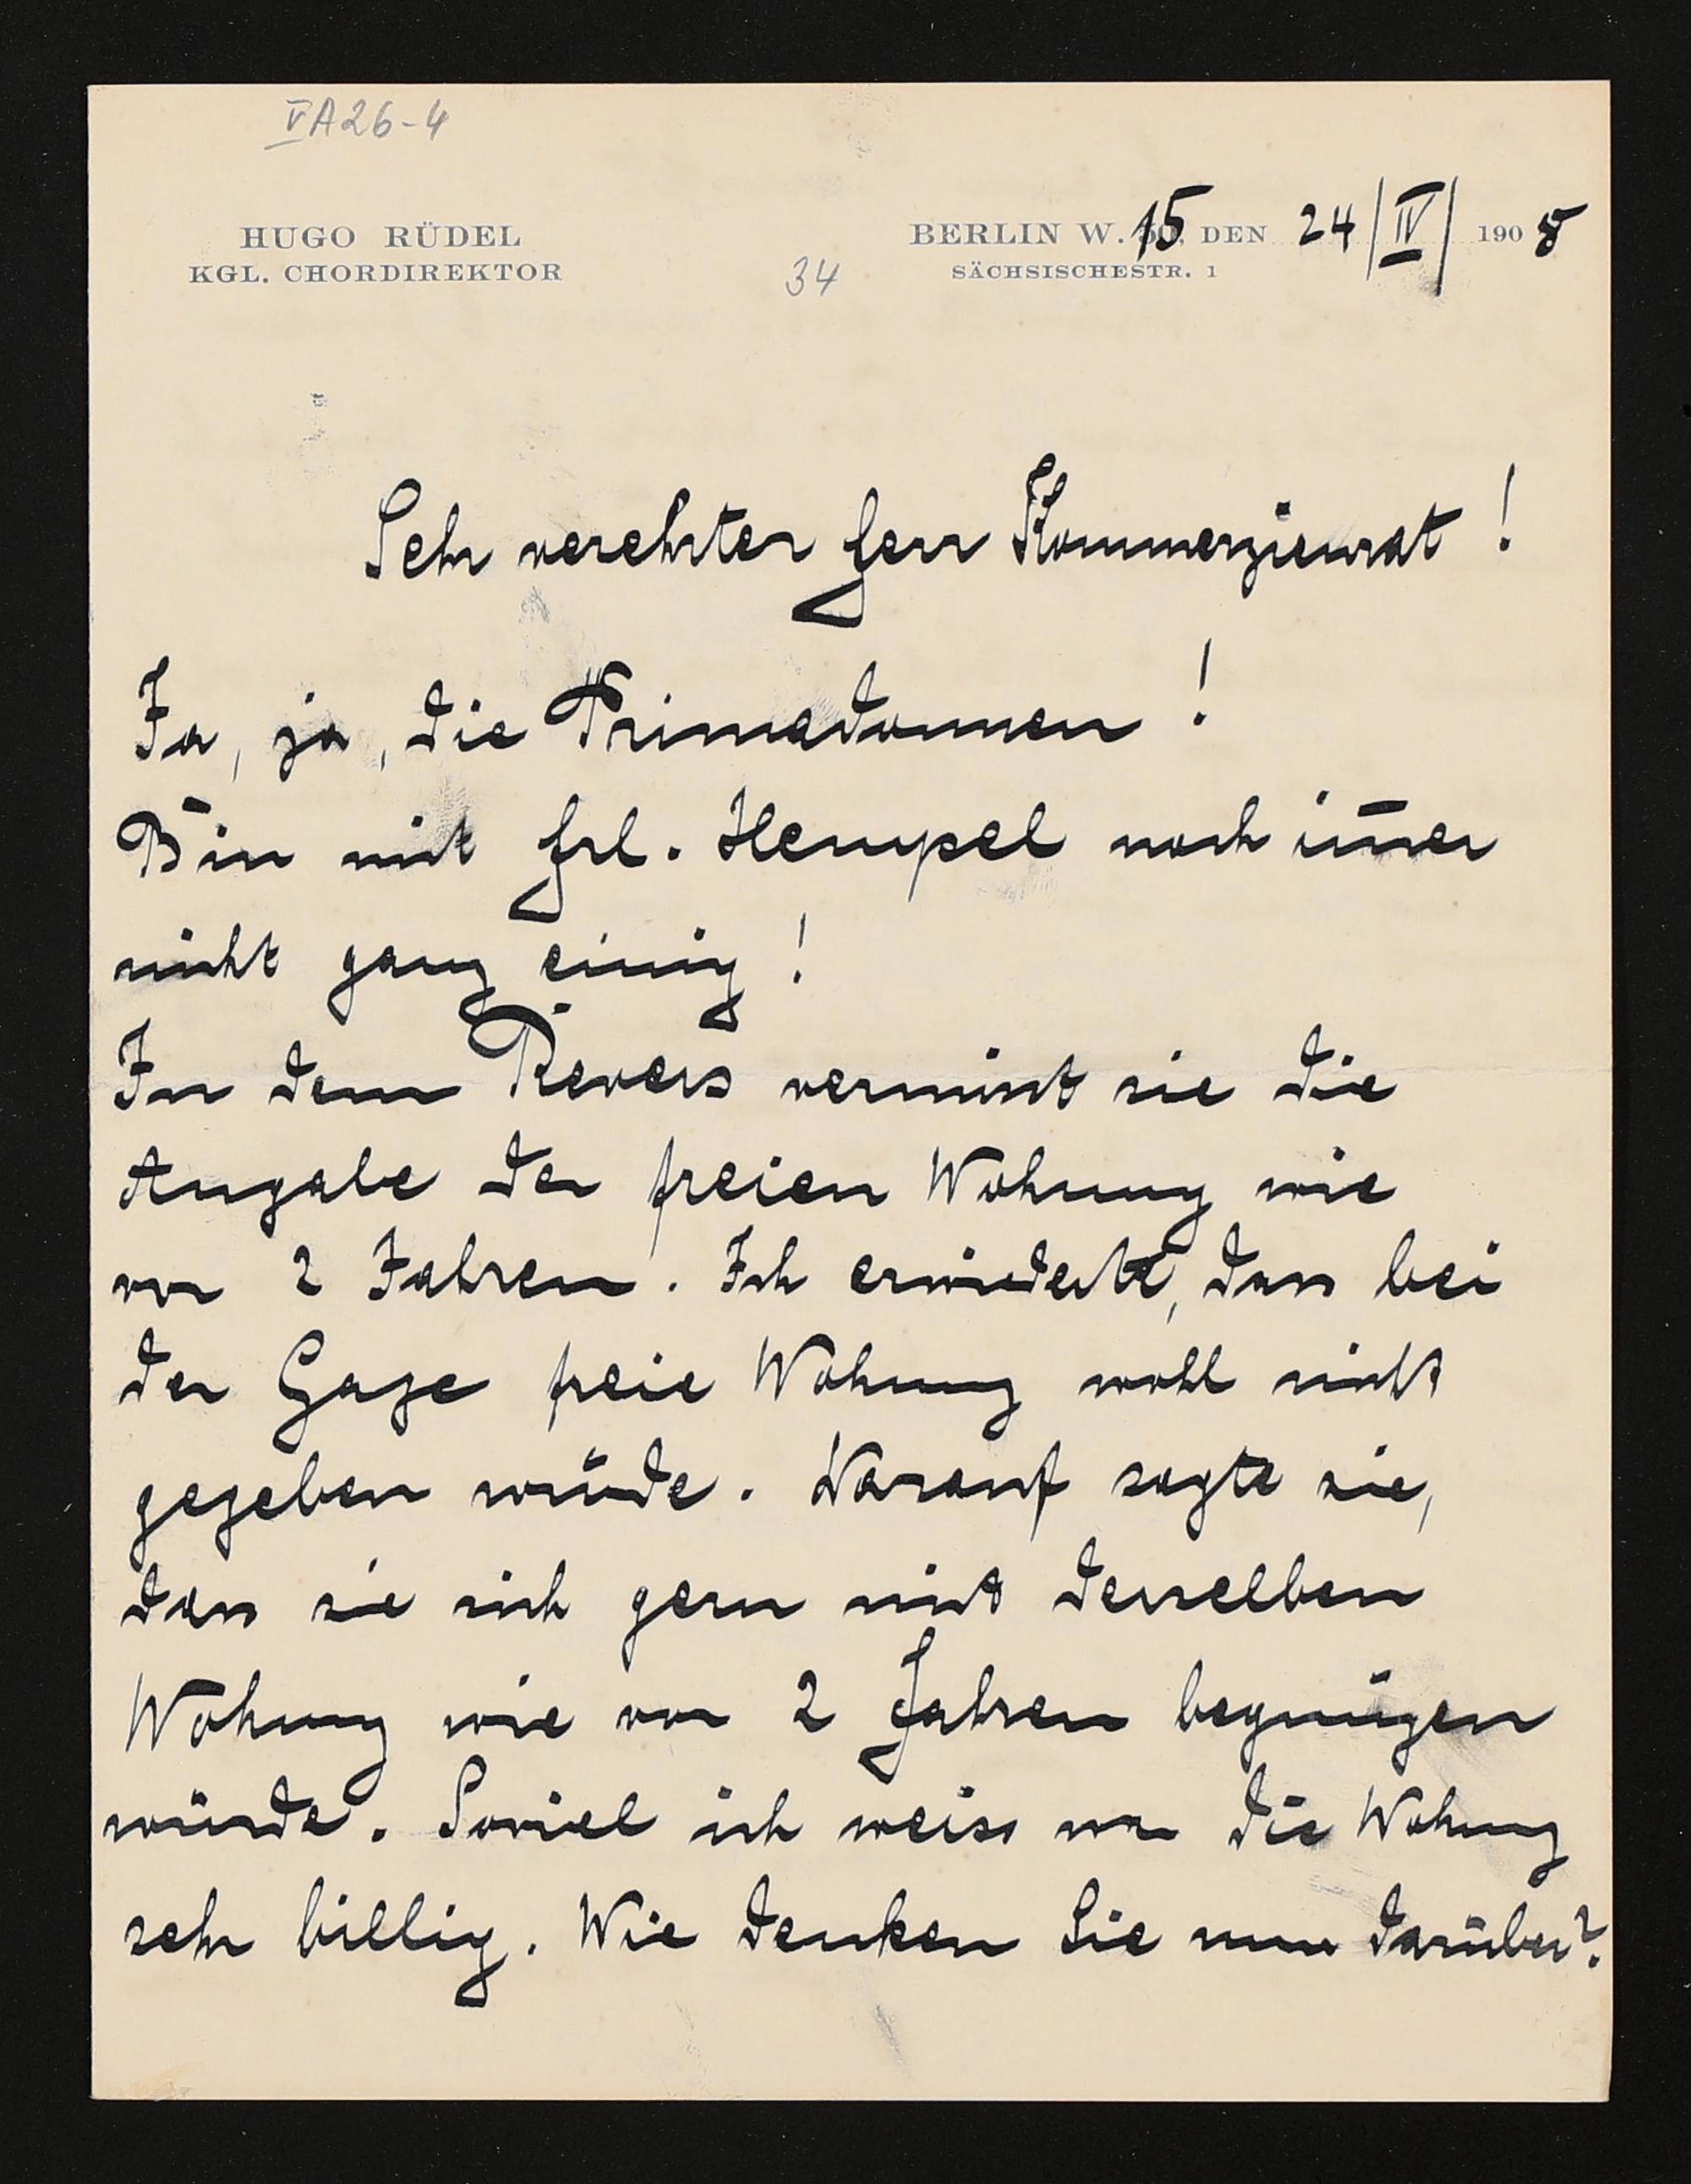 VA26-4
HUGO RÜDEL
KGL. CHORDIREKTOR
34
BERLIN W. 15, DEN 24/IV/ 1908
SÄCHSISCHESTR. 1
Sehr verehrter Herr Kommerzienrat!
Ja, ja, die Primadonnen!
Bin mit Frl. Hempel noch im̅er
nicht ganz einig!
In dem Revers vermisst sie die
Angabe der freien Wohnung wie
vor 2 Jahren. Ich erwiderte, dass bei
der Gage freie Wohnung wohl nicht
gegeben würde. Darauf sagte sie,
dass sie sich gern mit derselben
Wohnung wie vor 2 Jahren begnügen
würde. Soviel ich weiss war die Wohnung
sehr billig. Wie denken Sie nun darüber?